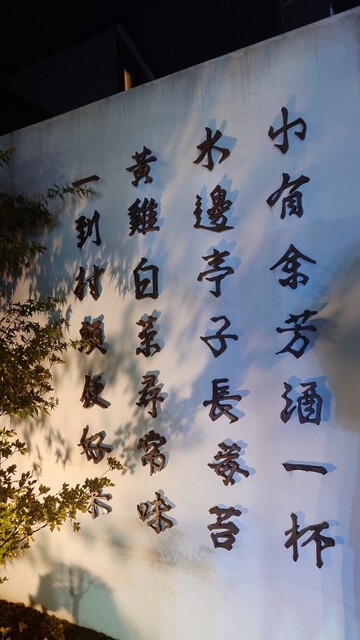 小有余芳酒一杯
水邊亭子長莓苔
黃雞白菜尋常味
一到村頭便好